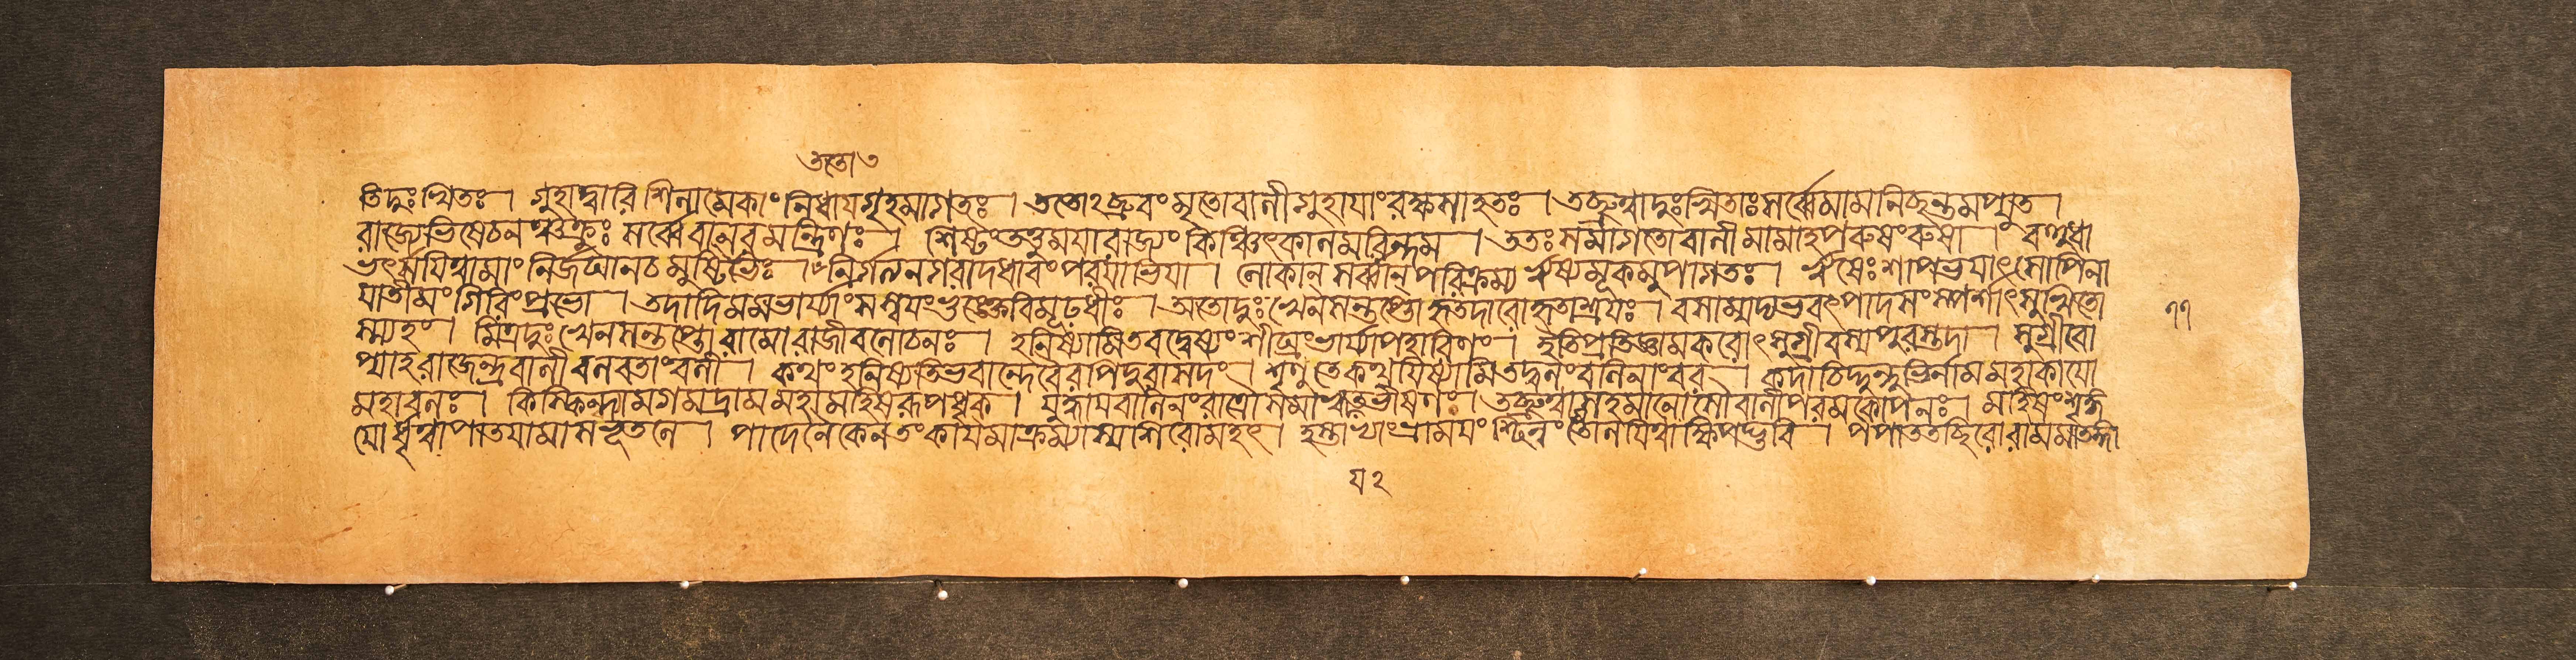 ততো৩
তিদুঃখিতঃ। গুহাদ্বারি শিলামেকাং নিধায গৃহমাগতঃ। ততোঽব্রুবং মৃতো বালী গুহাযাং রক্ষসাহতঃ। তচ্ছ্রুত্বাদুঃখিতাঃ সর্ব্বে মামনিচ্ছন্তমপ্যুত
রাজ্যেভিষেচনঞ্চক্রুঃ সর্ব্বে বানরমন্ত্রিণঃ। শিষ্টং তত্তু ময়া রাজ্যং কিঞ্চিৎকালমরিন্দম। ততঃ সমাগতো বালী মামাহ পরুষং রুষা। বহুধা
ভর্ৎসযিত্বা মাং নির্জঘান চ মুষ্টিভিঃ। নির্গত্য নগরাদধাবং পরযা ভিযা। লোকান্ সর্ব্বান্ পরিক্রম্য ঋষ্যমূকমুপাগতঃ। ঋষেঃ শাপভযাৎ সোপি না
যাতীমং গিরিং প্রভো। তদাদি মম ভার্য্যাং স স্বযং ভুঙ্ক্তে বিমূঢধীঃ। অতো দুঃখেন সন্তপ্তো হৃতদারো হৃতাশ্রযঃ। বসাম্যদ্য ভবৎপাদসংস্পর্শাৎ সুখিতো
স্ম্যহং। মিত্রদুঃখেন সন্তপ্তো রামো রাজীবলোচনঃ। হনিষ্যামি তব দ্বেষ্যং শীঘ্রং ভার্য্যাপহারিণং। ইতি প্রতিজ্ঞামকরোৎ সুগ্রীবস্য পুরস্তদা। সুগ্রীবো
প্যাহ রাজেন্দ্র বালী বলবতাং বলী। কথং হনিষ্যতি ভবান্দেবৈরপি দুরাসদং। শৃণু তে কথযিষ্যামি তদ্বলং বলিনাংবর। কদাচিদ্দুন্দুভির্নাম মহাকাযো
মহাবলঃ। কিস্কিন্ধ্যামগমদ্রাম মহামহিষরূপধৃক্। যুদ্ধায বালিনং রাত্রৌ সমাহ্বযত ভীষণঃ। তচ্ছ্রুত্বাসহমানোসৌ বালী পরমকোপনঃ। মহিষং শৃঙ্গ
যোর্ধৃত্বা পাতযামাস ভূতলে। পাদেনৈকেন তং কাযমাক্রম্যাস্য শিরো মহৎ। হস্তাভ্যাং ভ্রামযংশ্ছিত্ত্বা তোলযিত্বাক্ষিপদ্ভুবি। পপাত তচ্ছিরো রাম মাতঙ্গা
১১
য২